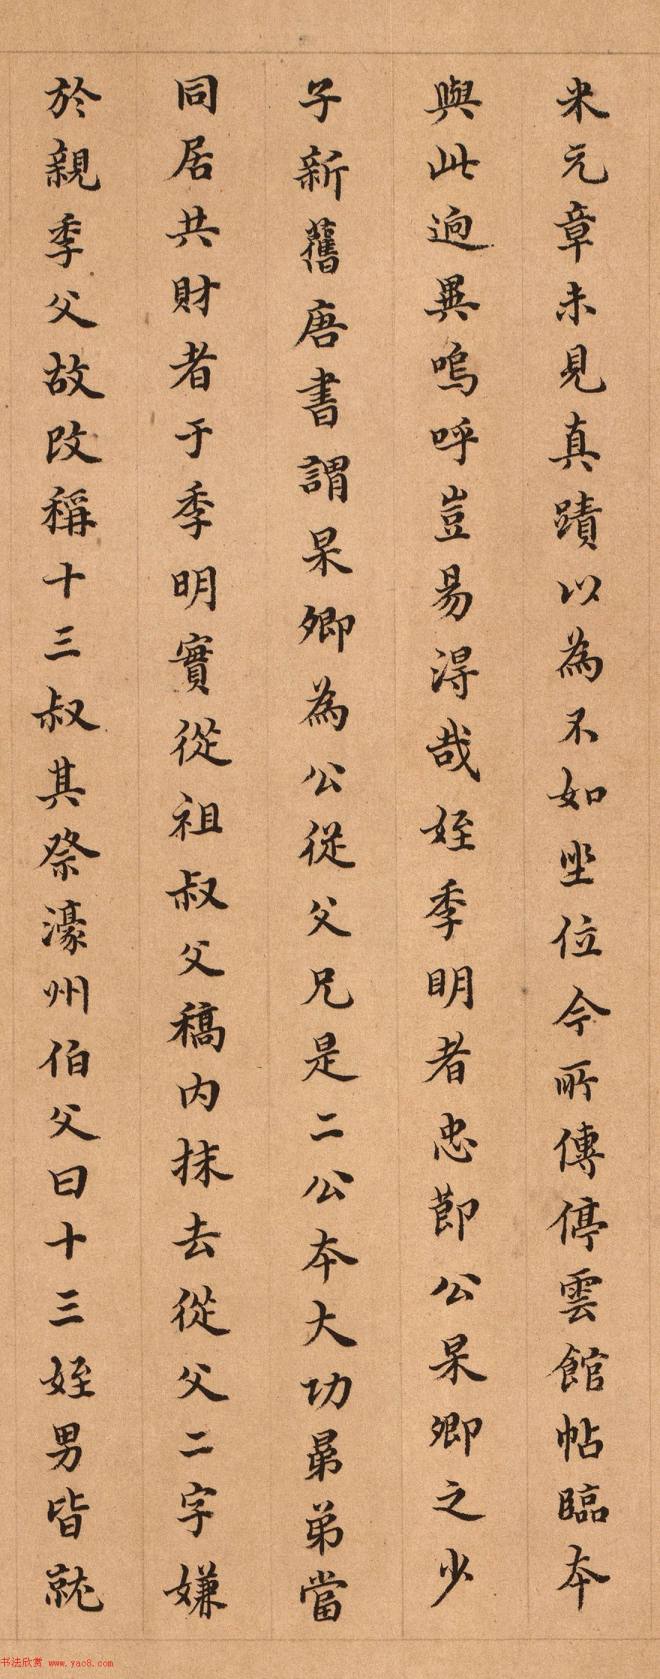 米元章未見真蹟以為不如坐位今所傳停雲館帖臨本
與此逈異嗚呼豈易得哉姪季明者忠節公杲卿之少
子新舊唐書謂杲卿為公從父兄是二公本大功晜弟當
同居共財者于季明實從祖叔父稿内抹去從父二字嫌
於親季父故改稱十三叔其祭濠州伯父曰十三姪男皆就
书法欣赏 www.yac8.com